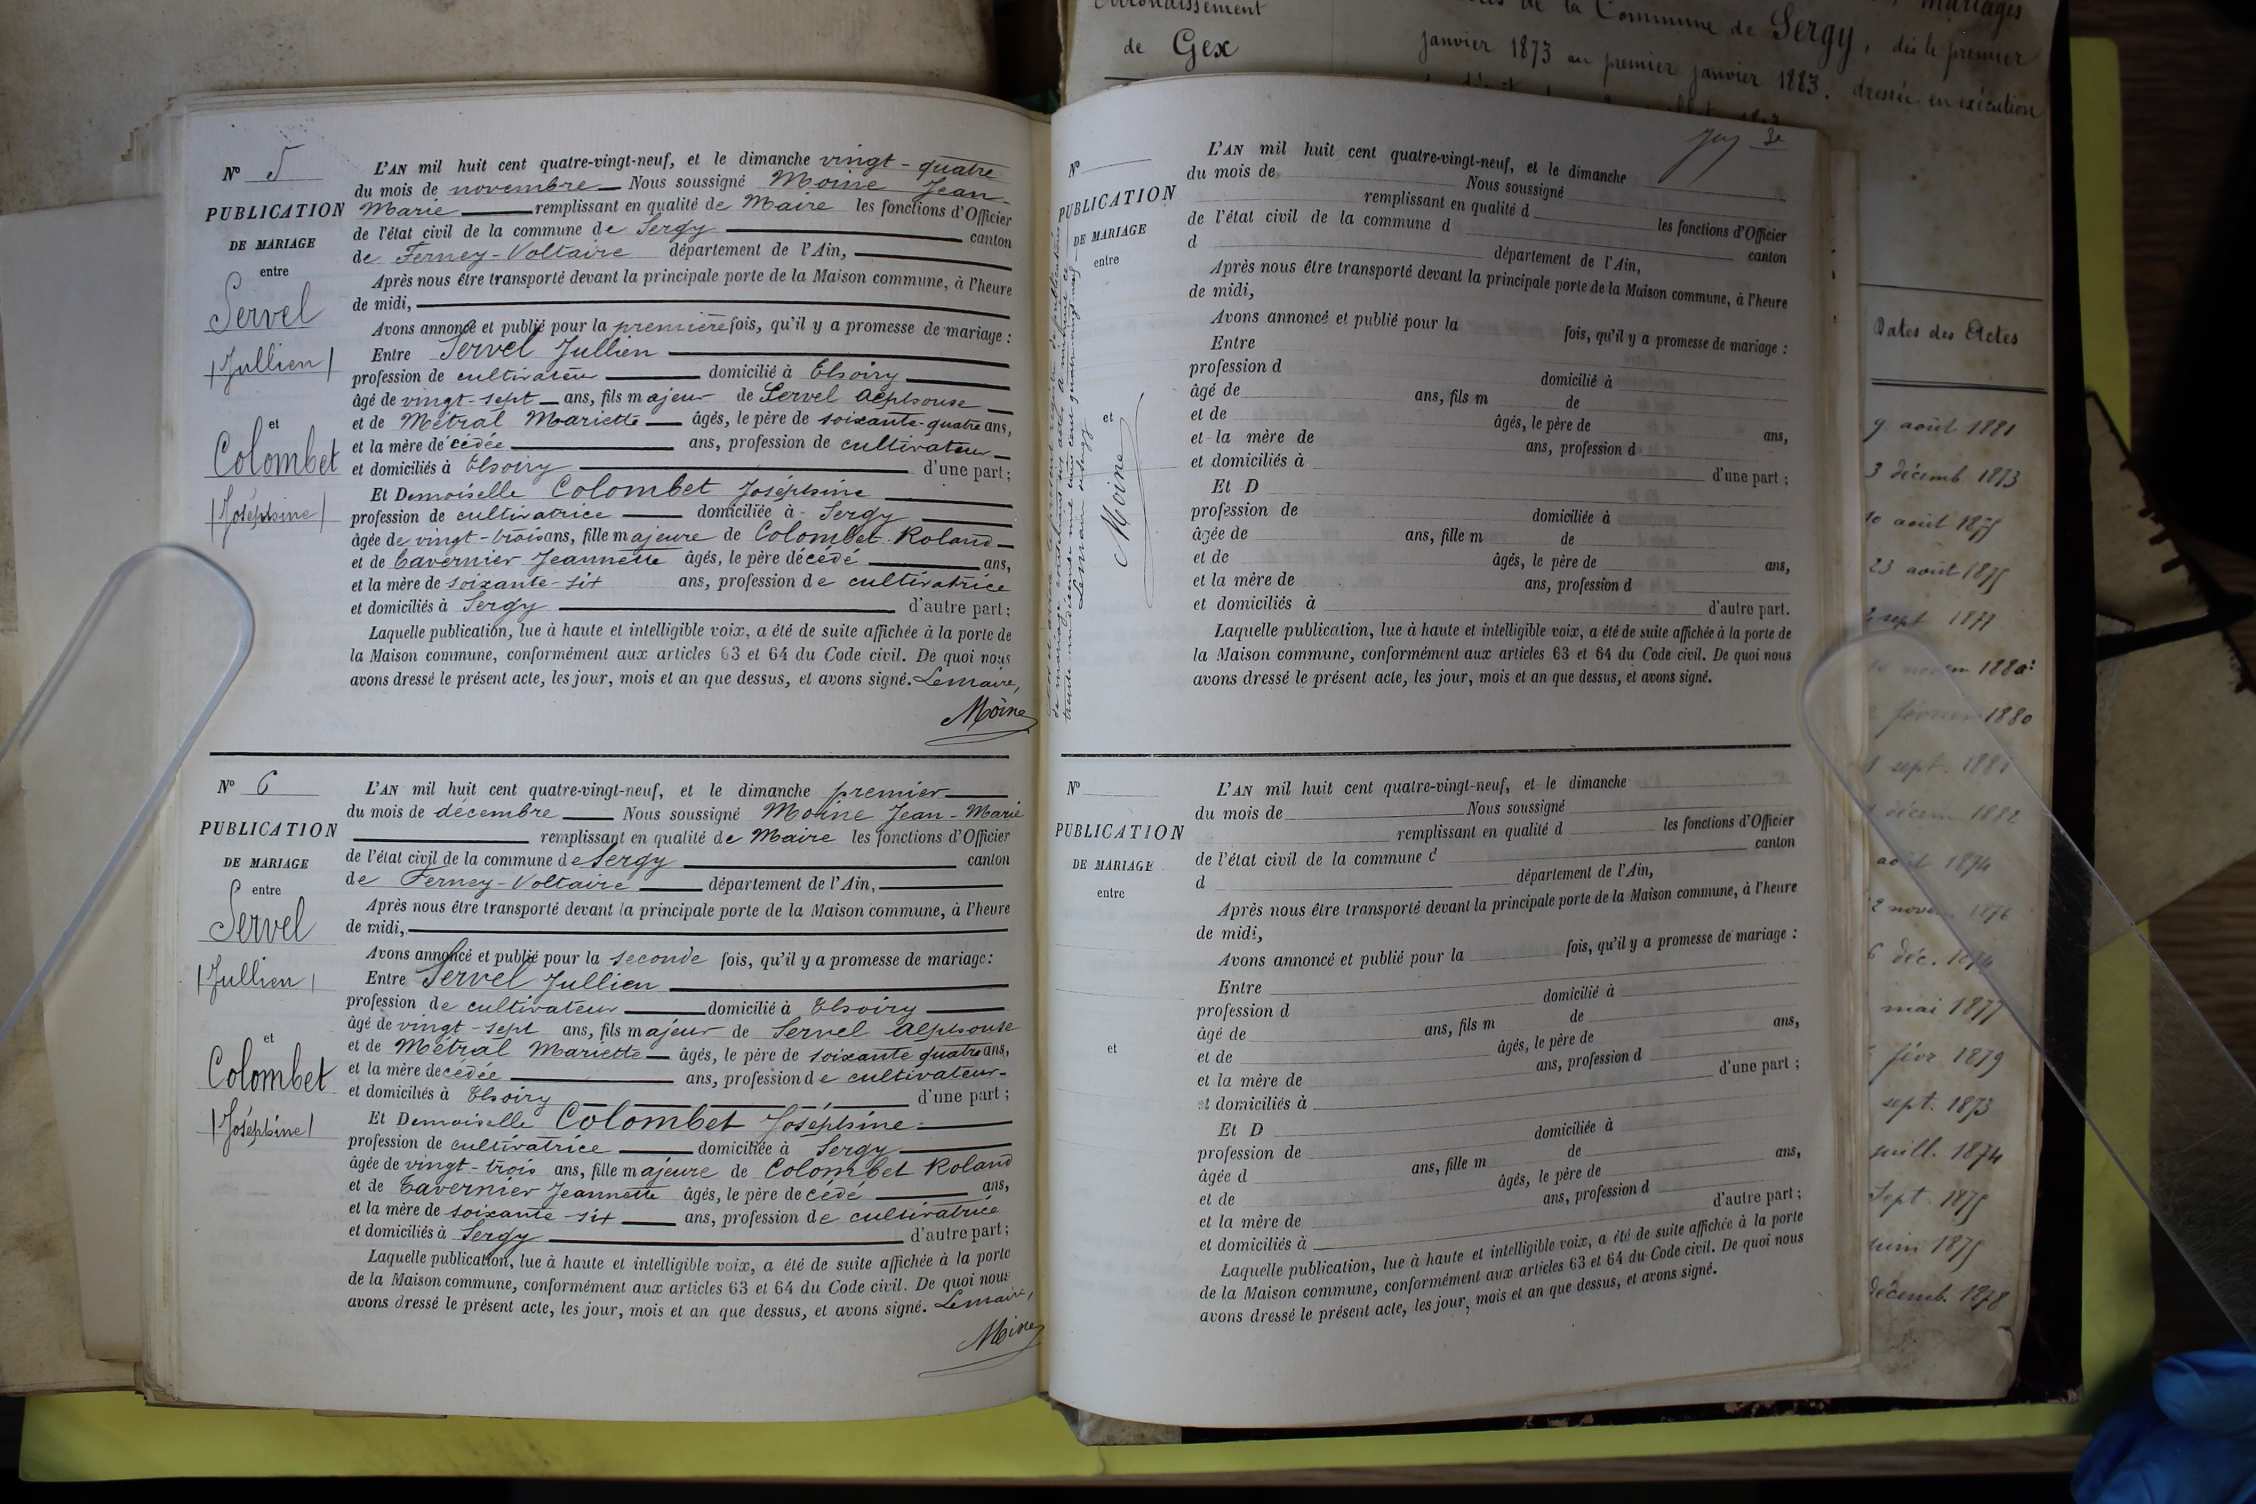 N° 5
PUBLICATION
DE MARIAGE
entre
Servel
(Jullien)
et
Colombet
(Joséphine)
L'AN mil huit cent quatre-vingt-neuf, et le dimanche vingt-quatre
du mois de novembre Nous soussigné Moine Jean-
Marie remplissant en qualité de Maire les fonctions d'Officier
de l'état civil de la commune de Sergy canton
de Ferney-Voltaire département de l'Ain,
Après nous être transporté devant la principale porte de la Maison commune, à l'heure
de midi,
Avons annoncé et publié pour la première fois, qu'il y a promesse de mariage :
Entre Servel Jullien
profession de cultivateur domicilié à Thoiry
âgé de vingt-sept ans, fils majeur de Servel Alphonse
et de Métral Mariette âgés, le père de soixante-quatre ans,
et la mère décédée ans, profession de cultivateur
et domiciliés à Thoiry d'une part ;
Et Demoiselle Colombet Joséphine
profession de cultivatrice domiciliée à Sergy
âgée de vingt-trois ans, fille majeure de Colombet Roland
et de Tavernier Jeannette âgés, le père décédé ans,
et la mère de soixante-six ans, profession de cultivatrice
et domiciliés à Sergy d'autre part ;
Laquelle publication, lue à haute et intelligible voix, a été de suite affichée à la porte de
la Maison commune, conformément aux articles 63 et 64 du Code civil. De quoi nous
avons dressé le présent acte, les jour, mois et an que dessus, et avons signé. Le maire,
Moine
N° 6
PUBLICATION
DE MARIAGE
entre
Servel
(Jullien)
et
Colombet
(Joséphine)
L'AN mil huit cent quatre-vingt-neuf, et le dimanche premier
du mois de décembre Nous soussigné Moine Jean-Marie
remplissant en qualité de Maire les fonctions d'Officier
de l'état civil de la commune de Sergy canton
de Ferney-Voltaire département de l'Ain,
Après nous être transporté devant la principale porte de la Maison commune, à l'heure
de midi,
Avons annoncé et publié pour la seconde fois, qu'il y a promesse de mariage :
Entre Servel Jullien
profession de cultivateur domicilié à Thoiry
âgé de vingt-sept ans, fils majeur de Servel Alphonse
et de Métral Mariette âgés, le père de soixante quatre ans,
et la mère décédée ans, profession de cultivateur
et domiciliés à Thoiry d'une part ;
Et Demoiselle Colombet Joséphine
profession de cultivatrice domiciliée à Sergy
âgée de vingt-trois ans, fille majeure de Colombet Roland
et de Tavernier Jeannette âgés, le père décédé ans,
et la mère de soixante-six ans, profession de cultivatrice
et domiciliés à Sergy d'autre part ;
Laquelle publication, lue à haute et intelligible voix, a été de suite affichée à la porte
de la Maison commune, conformément aux articles 63 et 64 du Code civil. De quoi nous
avons dressé le présent acte, les jour, mois et an que dessus, et avons signé. Le maire,
Moine
3e
N°
PUBLICATION
DE MARIAGE
entre
et
Le maire de Sergy
Moine
L'AN mil huit cent quatre-vingt-neuf, et le dimanche
du mois de Nous soussigné
remplissant en qualité d les fonctions d'Officier
de l'état civil de la commune d canton
d département de l'Ain,
Après nous être transporté devant la principale porte de la Maison commune, à l'heure
de midi,
Avons annoncé et publié pour la fois, qu'il y a promesse de mariage :
Entre
profession d domicilié à
âgé de ans, fils m de
et de âgés, le père de ans,
et la mère de ans, profession d
et domiciliés à d'une part ;
Et D
profession de domiciliée à
âgée de ans, fille m de
et de âgés, le père de ans,
et la mère de ans, profession d
et domiciliés à d'autre part.
Laquelle publication, lue à haute et intelligible voix, a été de suite affichée à la porte de
la Maison commune, conformément aux articles 63 et 64 du Code civil. De quoi nous
avons dressé le présent acte, les jour, mois et an que dessus, et avons signé.
N°
PUBLICATION
DE MARIAGE
entre
et
L'AN mil huit cent quatre-vingt-neuf, et le dimanche
du mois de Nous soussigné
remplissant en qualité d les fonctions d'Officier
de l'état civil de la commune d canton
d département de l'Ain,
Après nous être transporté devant la principale porte de la Maison commune, à l'heure
de midi,
Avons annoncé et publié pour la fois, qu'il y a promesse de mariage :
Entre
profession d domicilié à
âgé de ans, fils m de
et de âgés, le père de ans,
et la mère de ans, profession d
et domiciliés à d'une part ;
Et D
profession de domiciliée à
âgée d ans, fille m de
et de âgés, le père de ans,
et la mère de ans, profession d
et domiciliés à d'autre part ;
Laquelle publication, lue à haute et intelligible voix, a été de suite affichée à la porte
de la Maison commune, conformément aux articles 63 et 64 du Code civil. De quoi nous
avons dressé le présent acte, les jour, mois et an que dessus, et avons signé.
Arrondissement
de Gex
mariages
de la Commune de Sergy, dès le premier
janvier 1873 au premier janvier 1883. dressée en exécution
Dates des Actes
9 août 1881
3 décemb 1873
10 août 1875
23 août 1875
2 sept 1877
novem 1880
février 1880
1 sept. 1881
décem 1882
août 1874
2 novem 1876
6 déc. 1874
mai 1877
févr 1879
sept. 1873
juill. 1874
Sept. 1875
juin 1875
décemb. 1878